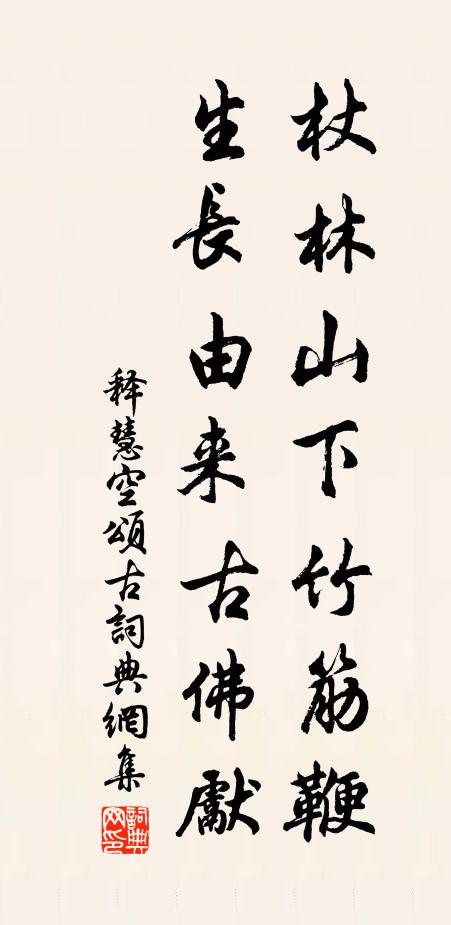 杖林山下竹筋鞭
生長由来古佛獻
释慧空頌古詞典網集
詞典網印